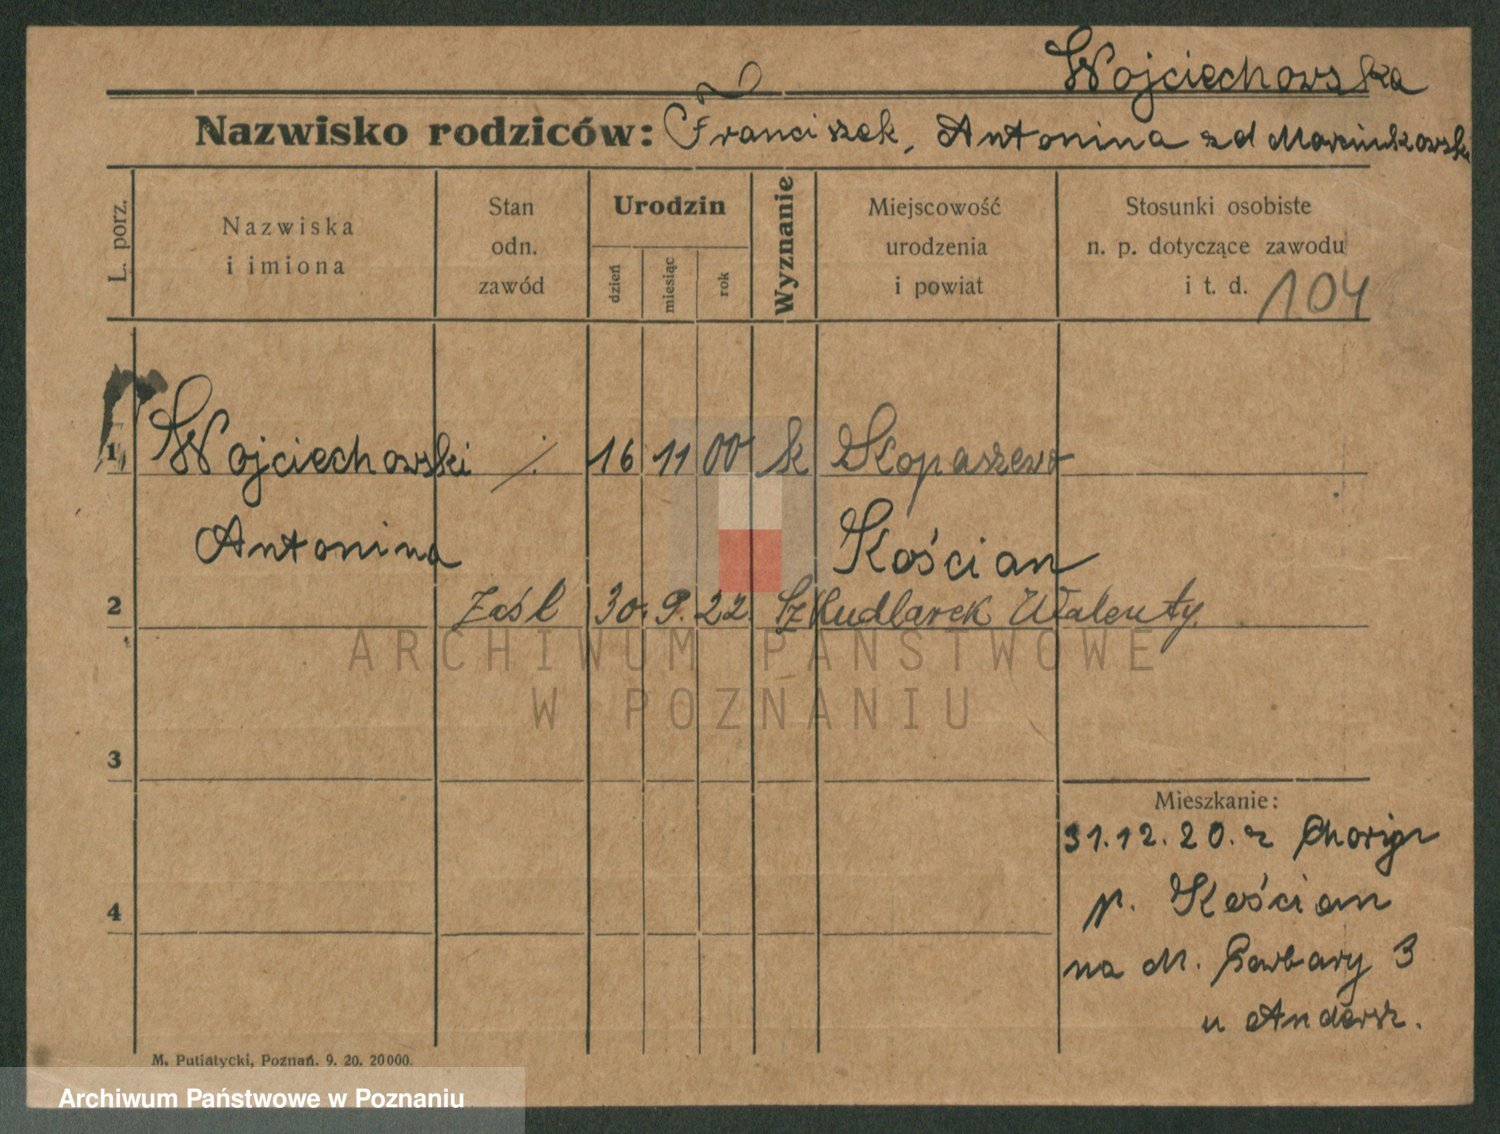 Wojciechowska
Nazwisko rodziców: Franciszek, Antonina zd Marcinkowska
L. porz.
Nazwiska
i imiona
Stan
odn.
zawód
Urodzin
dzień
miesiąc
rok
Wyznanie
Miejscowość
urodzenia
i powiat
Stosunki osobiste
n. p. dotyczące zawodu
i t. d. 104
1 Wojciechowski ./. 16 11 00 k
Kościan
Antonina
2 Zaśl 30. 9. 22 Szkudlarek Walenty
ARCHIWUM PAŃSTWOWE
W POZNANIU
3
Mieszkanie:
31.12.20. z
4
p. Kościan
na M. Garbary 3
u Andersz.
M. Putiatycki, Poznań. 9. 20. 20000.
Archiwum Państwowe w Poznaniu